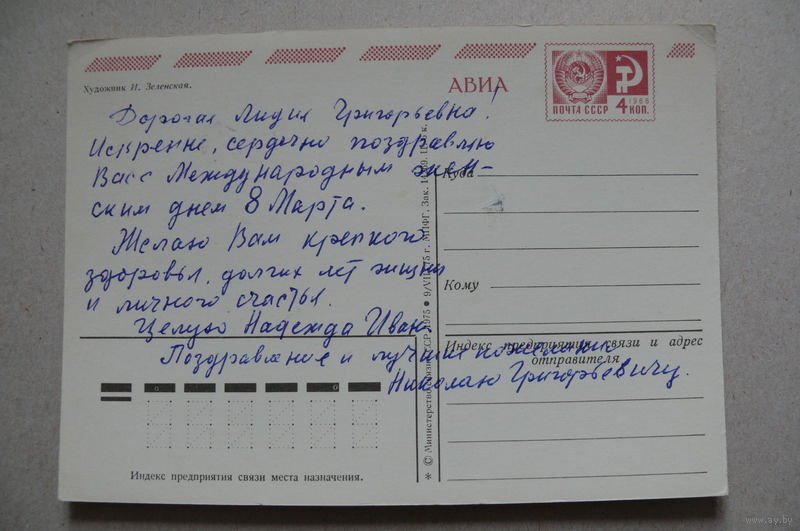 Художник И. Зеленская.
АВИА
ПОЧТА СССР
1966
4 КОП.
Дорогая Лидия Григорьевна!
Искренне, сердечно поздравляю
Вас с Международным жен-
ским днем 8 Марта.
Желаю Вам крепкого
здоровья, долгих лет жизни
и личного счастья.
Целую Надежда Иван
Поздравление и лучшие пожелания
Николаю Григорьевичу.
Куда
Кому
Индекс предприятия связи и адрес
отправителя
Индекс предприятия связи места назначения.
* © Министерство связи СССР, 1975 ● 9/VII-75 г. МПФГ. Зак.
www.ay.by